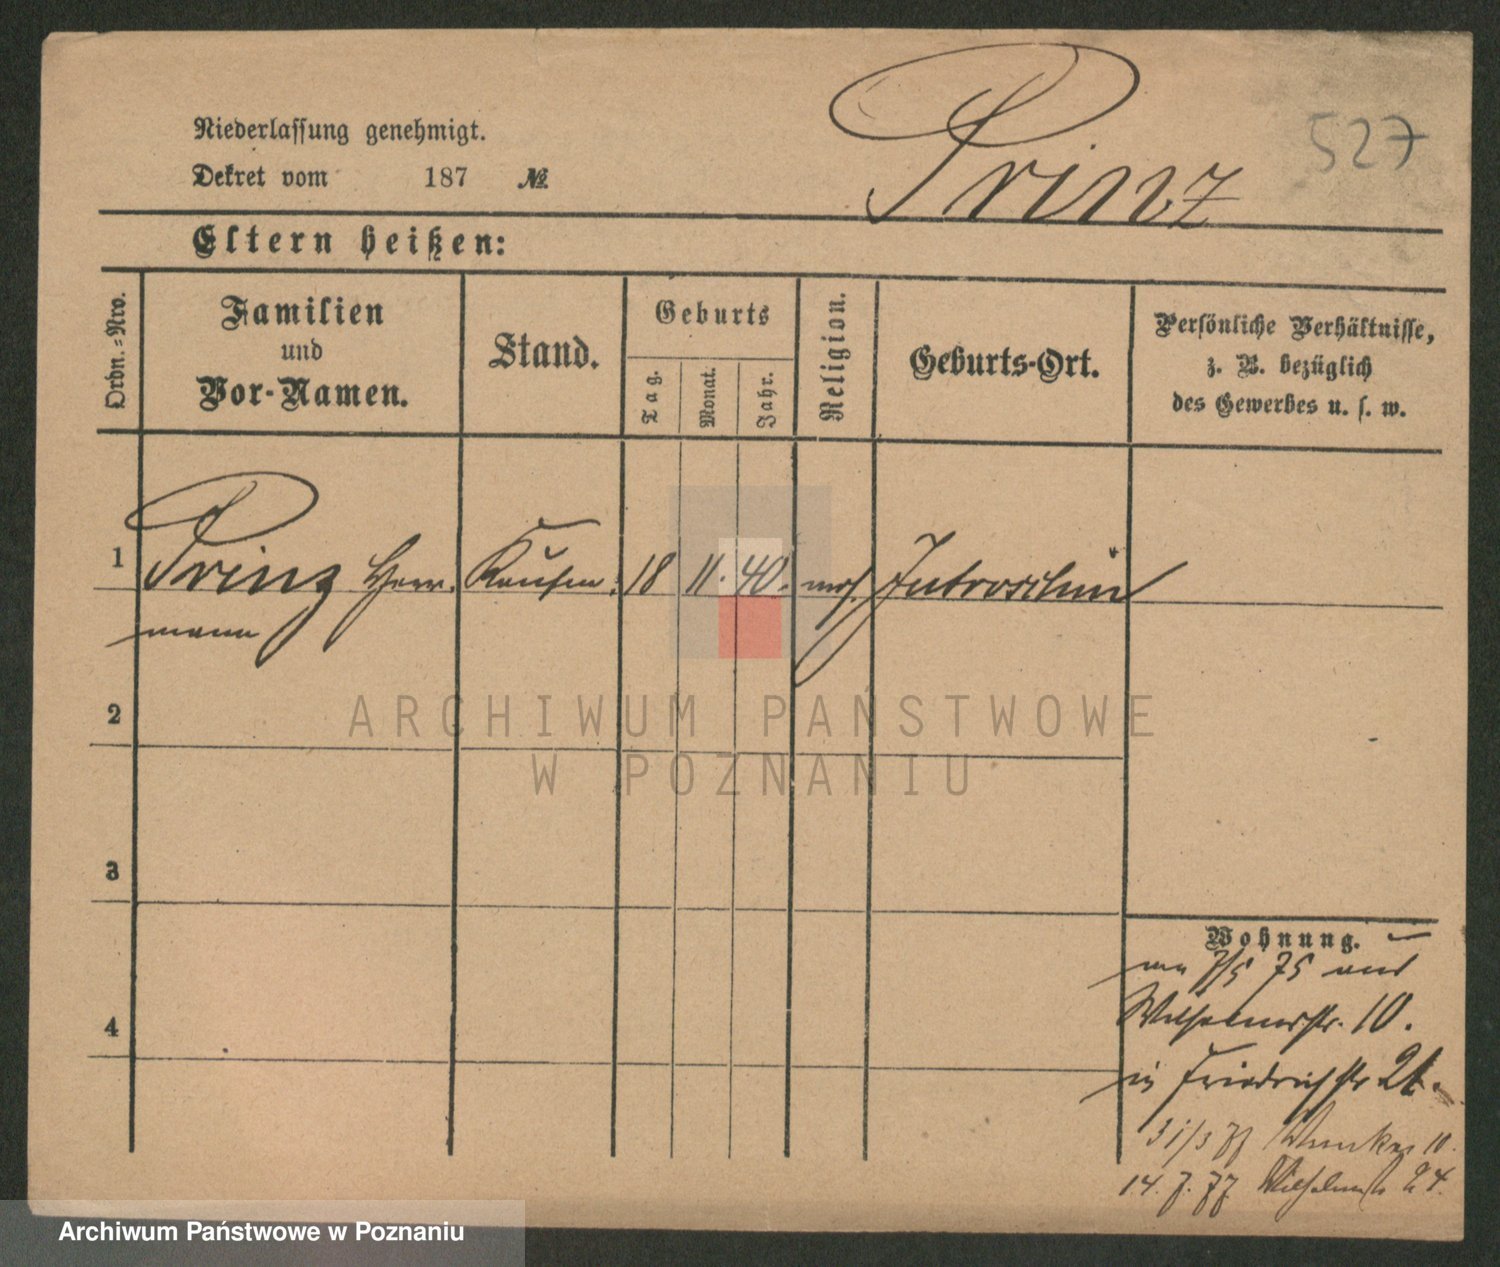 527
Prinz
Niederlassung genehmigt.
Dekret vom 187 №
Eltern heißen:
Ordn.-Nro.
Familien
und
Vor-Namen.
Stand.
Geburts
Tag.
Monat.
Jahr.
Religion.
Geburts-Ort.
Persönliche Verhältnisse,
z. B. bezüglich
des Gewerbes u. s. w.
1 Prinz Herr- Kaufm. 18 11. 40. mos. Jutroschin
mann
2
3
4
Wohnung.
7/5 75 aus
Wilhelmsstr. 10.
in Friedrichstr 21.
31/3 77 10.
14. 7. 77 Wilhelmstr 24.
ARCHIWUM PAŃSTWOWE
W POZNANIU
Archiwum Państwowe w Poznaniu